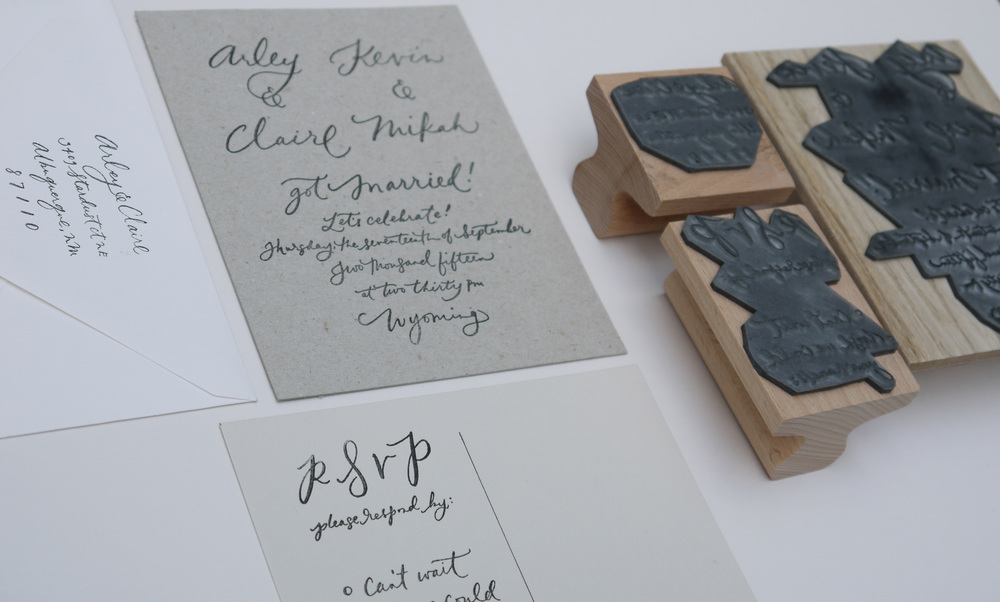 Arley & Claire
Stardust Ct NE
Albuquerque, NM
87110
Arley Kevin
& &
Claire Mikah
got married!
Let's celebrate!
Thursday, the seventeenth of September
two thousand fifteen
at two thirty pm
Wyoming
RSVP
please respond by:
Can't wait
could